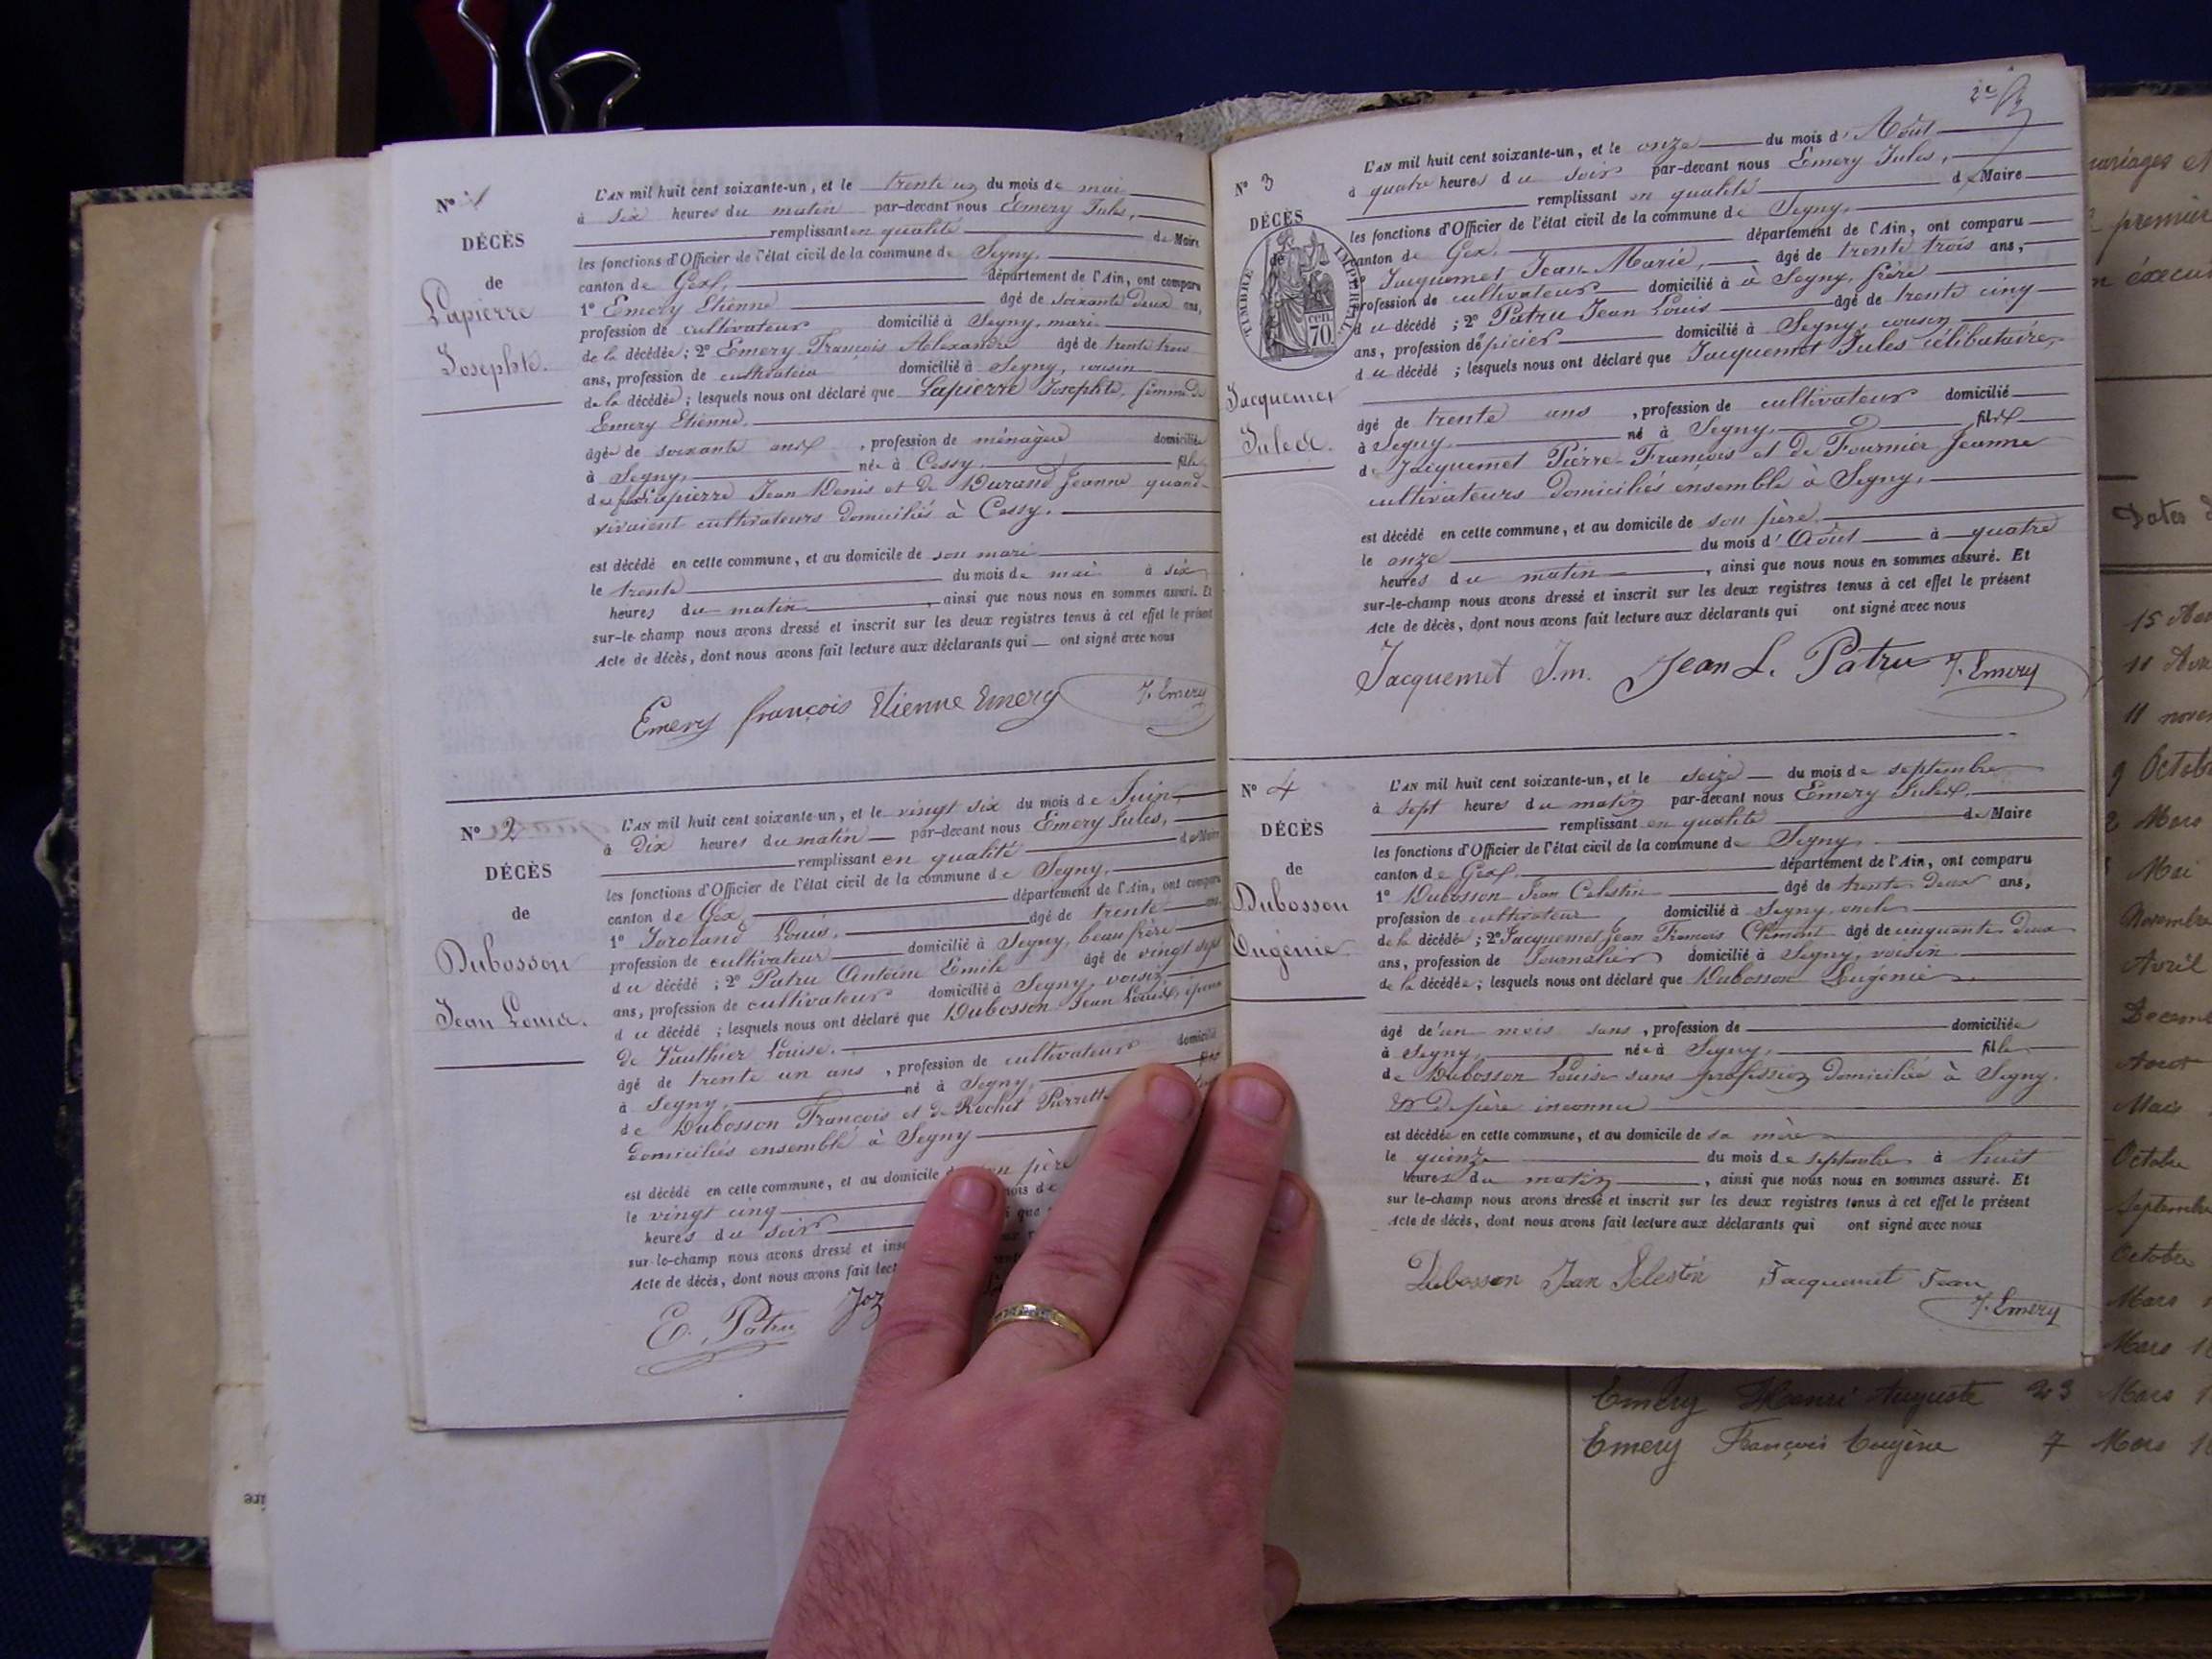 N° 1
DÉCÈS
de
Lapierre
Josephte.
L'AN mil huit cent soixante-un, et le trente un du mois de mai
à six heures du matin par-devant nous Emery Jules,
remplissant en qualité de Maire
les fonctions d'Officier de l'état civil de la commune de Segny,
canton de Gex, département de l'Ain, ont comparu
1° Emery Etienne âgé de soixante deux ans,
profession de cultivateur domicilié à Segny, mari
de la décédée; 2° Emery François Alexandre âgé de trente trois
ans, profession de cultivateur domicilié à Segny, cousin
de la décédée; lesquels nous ont déclaré que Lapierre Josephte, femme de
Emery Etienne,
âgée de soixante ans, profession de ménagère domiciliée
à Segny, née à Cessy fille
de Lapierre Jean Denis et de Durand Jeanne quand
vivaient cultivateurs domiciliés à Cessy.
est décédé en cette commune, et au domicile de son mari
le trente du mois de mai à six
heures du matin, ainsi que nous nous en sommes assuré. Et
sur-le-champ nous avons dressé et inscrit sur les deux registres tenus à cet effet le présent
Acte de décès, dont nous avons fait lecture aux déclarants qui ont signé avec nous
Emery françois Etienne Emery J. Emery
N° 2
DÉCÈS
de
Dubosson
Jean Louis.
L'AN mil huit cent soixante-un, et le vingt six du mois de Juin,
à Dix heures du matin par-devant nous Emery Jules,
remplissant en qualité de Maire
les fonctions d'Officier de l'état civil de la commune de Segny,
canton de Gex, département de l'Ain, ont comparu
1° Louis, âgé de trente ans,
profession de cultivateur domicilié à Segny, beau frère
du décédé; 2° Patru Antoine Emile âgé de vingt sept
ans, profession de cultivateur domicilié à Segny, voisin
du décédé; lesquels nous ont déclaré que Dubosson Jean Louis, époux
de Vauthier Louise.
âgé de trente un ans, profession de cultivateur domicilié
à Segny, né à Segny, fils
de Dubosson François et de Rochet Pierrette
domiciliés ensemble à Segny
est décédé en cette commune, et au domicile père
le vingt cinq mois de
heures du soir
sur-le-champ nous avons dressé et
Acte de décès, dont nous avons fait
E. Patru
2e
N° 3
DÉCÈS
de
TIMBRE IMPERIAL
70 cen
Jacquemet
Jules.
L'AN mil huit cent soixante-un, et le onze du mois d'Août
à quatre heures du soir par-devant nous Emery Jules,
remplissant en qualité de Maire
les fonctions d'Officier de l'état civil de la commune de Segny,
canton de Gex, département de l'Ain, ont comparu
1° Jacquemet Jean-Marie, âgé de trente trois ans,
profession de cultivateur domicilié à à Segny, frère
du décédé; 2° Patru Jean Louis âgé de trente cinq
ans, profession d'épicier domicilié à Segny, cousin
du décédé; lesquels nous ont déclaré que Jacquemet Jules célibataire,
âgé de trente ans, profession de cultivateur domicilié
à Segny, né à Segny, fils
de Jacquemet Pierre-François et de Fournier Jeanne
cultivateurs domiciliés ensemble à Segny,
est décédé en cette commune, et au domicile de son père
le onze du mois d'Août à quatre
heures du matin, ainsi que nous nous en sommes assuré. Et
sur-le-champ nous avons dressé et inscrit sur les deux registres tenus à cet effet le présent
Acte de décès, dont nous avons fait lecture aux déclarants qui ont signé avec nous
Jacquemet J.m. Jean L. Patru J. Emery
N° 4
DÉCÈS
de
Dubosson
Eugénie
L'AN mil huit cent soixante-un, et le seize du mois de septembre
à sept heures du matin par-devant nous Emery Jules,
remplissant en qualité de Maire
les fonctions d'Officier de l'état civil de la commune de Segny,
canton de Gex, département de l'Ain, ont comparu
1° Dubosson Jean Celestin âgé de trente deux ans,
profession de cultivateur, domicilié à Segny, oncle
de la décédée; 2° Jacquemet Jean François Clément âgé de cinquante deux
ans, profession de Journalier domicilié à Segny, voisin
de la décédée; lesquels nous ont déclaré que Dubosson Eugénie
âgé d'un mois sans, profession de domiciliée
à Segny, née à Segny, fille
de Dubosson Louise sans profession domiciliée à Segny.
et de père inconnu
est décédée en cette commune, et au domicile de sa mère
le quinze du mois de septembre à huit
heures du matin, ainsi que nous nous en sommes assuré. Et
sur le-champ nous avons dressé et inscrit sur les deux registres tenus à cet effet le présent
Acte de décès, dont nous avons fait lecture aux déclarants qui ont signé avec nous
Dubosson Jean Selestin Jacquemet Jean
J. Emery
mariages et
premier
Dates
15
11
11 novem
9 Octob
2 Mars
Mai
Novembre
Avril
Decem
Aout
Mars
Octobre
Septembre
Octobre
Mars
Mars
Emery Henri Auguste 23 Mars
Emery François Eugène 7 Mars